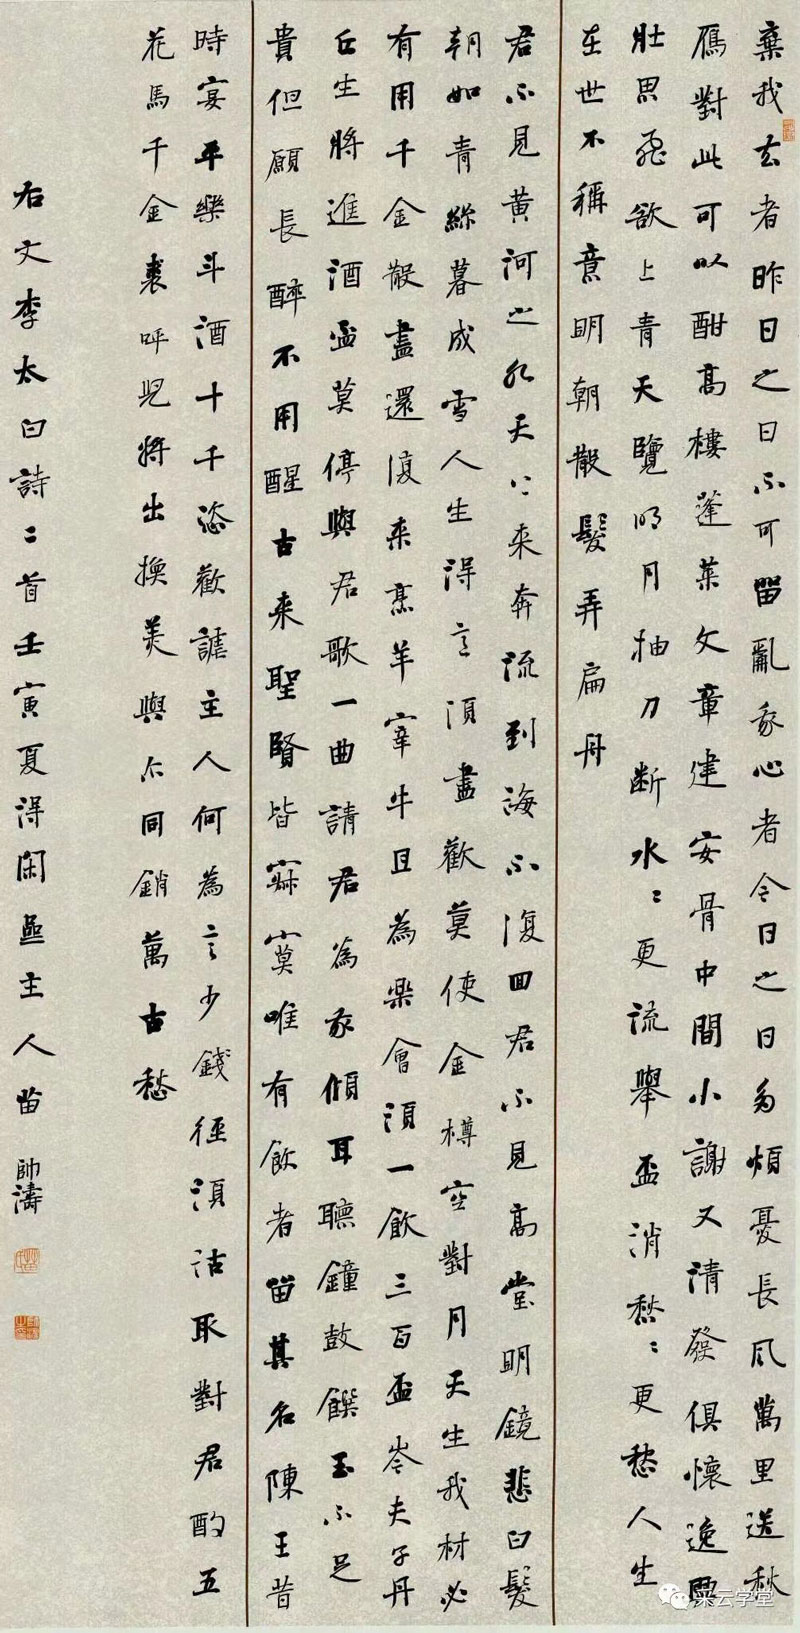 棄我去者昨日之日不可留亂我心者今日之日多煩憂長風萬里送秋
雁對此可以酣高樓蓬萊文章建安骨中間小謝又清發俱懷逸興
壯思飛欲上青天覽明月抽刀断水〻更流舉盃消愁〻更愁人生
在世不稱意明朝散髮弄扁舟
君不見黃河之水天上来奔流到海不復回君不見高堂明鏡悲白髮
朝如青絲暮成雪人生得意須盡歡莫使金樽空對月天生我材必
有用千金散盡還復来烹羊宰牛且為樂會須一飲三百盃岑夫子丹
丘生將進酒盃莫停與君歌一曲請君為我傾耳聽鐘鼓饌玉不足
貴但願長醉不用醒古来聖賢皆寂寞唯有飲者留其名陳王昔
時宴平樂斗酒十千恣歡謔主人何為言少錢徑須沽取對君酌五
花馬千金裘呼兒將出換美與尒同銷萬古愁
右文李太白詩二首壬寅夏得閑主人苗帥濤
采云学堂